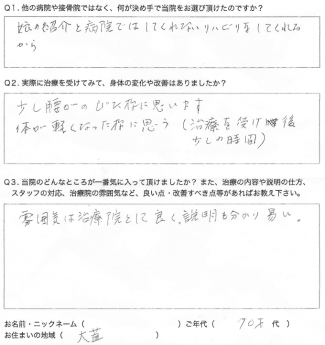 Q1. 他の病院や接骨院ではなく、何が決め手で当院をお選び頂けたのですか?
の紹介と病院ではしてくれないリハビリをしてくれる
から
Q2. 実際に治療を受けてみて、身体の変化や改善はありましたか?
少し腰がのびた様に思います
体が軽くなった様に思う(治療を受け後
少しの時間)
Q3. 当院のどんなところが一番気に入って頂けましたか? また、治療の内容や説明の仕方、
スタッフの対応、治療院の雰囲気など、良い点・改善すべき点等があればお教え下さい。
雰囲気は治療院として良く、説明も分かり易い。
お名前・ニックネーム( )ご年代( 70才 代 )
お住まいの地域( 大藍 )